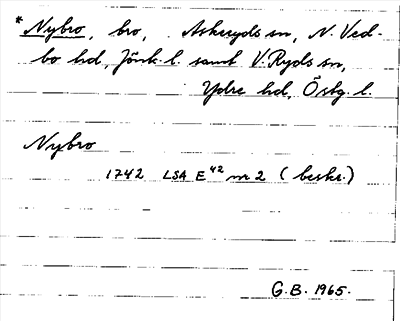 * Nybro, bro, Askeryds sn, N. Ved-
bo hd, Jönk. l. samt V. Ryds sn,
Ydre hd, Östg. l.
Nybro
1742 LSA E⁴² nr 2 (beskr.)
G.B. 1965.